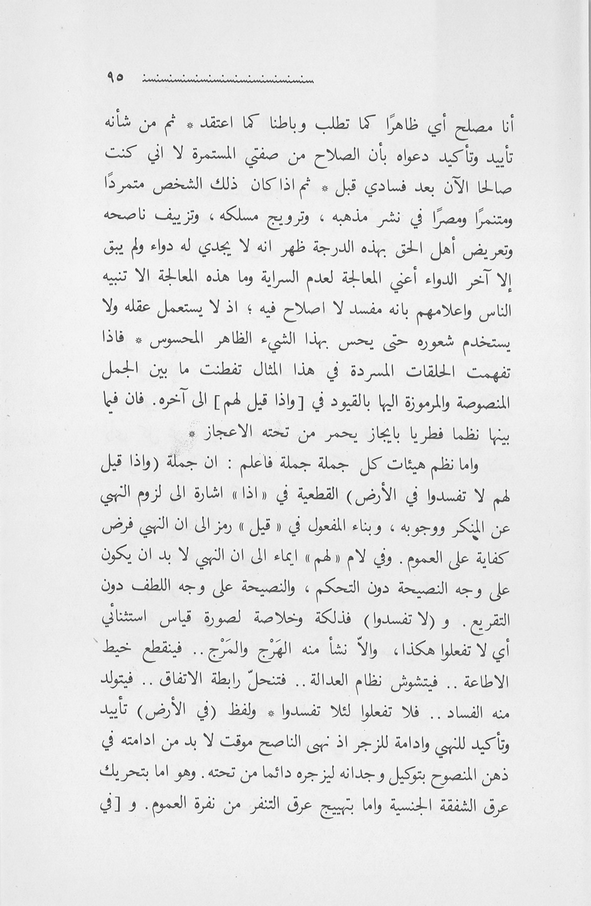 ٩٥
أنا مصلح أي ظاهرًا كما تطلب وباطنا كما اعتقد * ثم من شأنه
تأييد وتأكيد دعواه بأن الصلاح من صفتي المستمرة لا اني كنت
صالحا الآن بعد فسادي قبل * ثم اذا كان ذلك الشخص متمردًا
ومتنمرًا ومصرًا في نشر مذهبه ، وترويج مسلكه ، وتزييف ناصحه
وتعريض أهل الحق بهذه الدرجة ظهر انه لا يجدي له دواء ولم يبق
إلا آخر الدواء أعني المعالجة لعدم السراية وما هذه المعالجة الا تنبيه
الناس واعلامهم بانه مفسد لا اصلاح فيه ؛ اذ لا يستعمل عقله ولا
يستخدم شعوره حتى يحس بهذا الشيء الظاهر المحسوس * فاذا
تفهمت الحلقات المسردة في هذا المثال تفطنت ما بين الجمل
المنصوصة والمرموزة اليها بالقيود في [واذا قيل لهم] الى آخره. فان فيما
بينها نظما فطريا بايجاز يحمر من تحته الاعجاز *
واما نظم هيئات كل جملة جملة فاعلم : ان جملة (واذا قيل
لهم لا تفسدوا في الأرض) القطعية في « اذا » اشارة الى لزوم النهي
عن المنكر ووجوبه ، وبناء المفعول في « قيل » رمز الى ان النهي فرض
كفاية على العموم. وفي لام « لهم » ايماء الى ان النهي لا بد ان يكون
على وجه النصيحة دون التحكم ، والنصيحة على وجه اللطف دون
التقريع. و (لا تفسدوا) فذلكة وخلاصة لصورة قياس استثنائي
أي لا تفعلوا هكذا، والاّ نشأ منه الهَرْج والمَرْج .. فينقطع خيط
الاطاعة .. فيتشوش نظام العدالة .. فتنحلّ رابطة الاتفاق .. فيتولد
منه الفساد .. فلا تفعلوا لئلا تفسدوا * ولفظ (في الأرض) تأييد
وتأكيد للنهي وادامة للزجر اذ نهى الناصح موقت لا بد من ادامته في
ذهن المنصوح بتوكيل وجدانه ليزجره دائما من تحته. وهو اما بتحريك
عرق الشفقة الجنسية واما بتهييج عرق التنفر من نفرة العموم. و [في